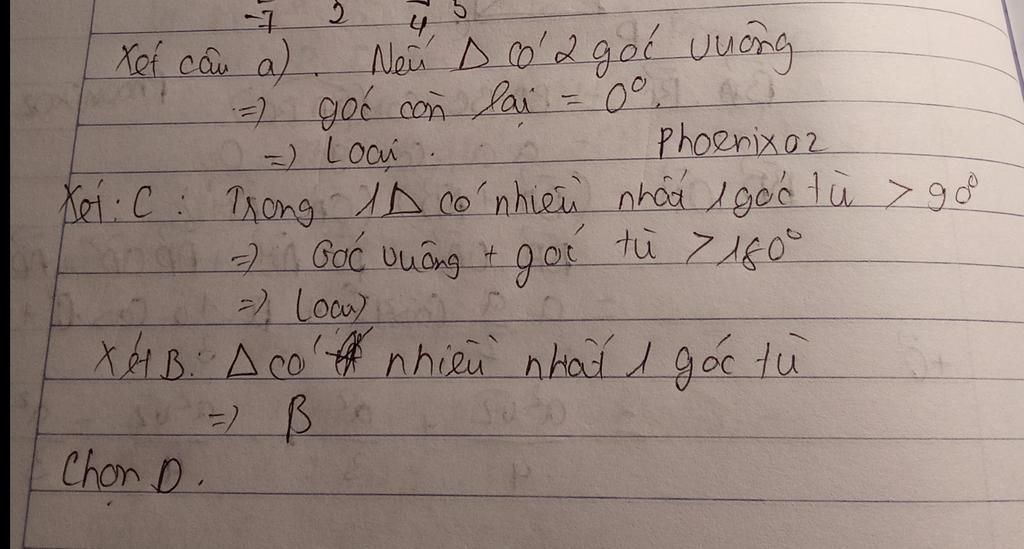 -7 2 4 5
Xét câu a). Nếu Δ có 2 góc vuông
=> góc còn lại = 0°.
=> Loại. Phoenixo2
Xét: C: Trong 1Δ có nhiều nhất 1 góc tù > 90°
=> Góc vuông + góc tù > 180°
=> Loại
Xét B: Δ có nhiều nhất 1 góc tù
=> B
Chọn D.